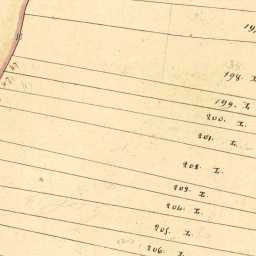 198. I.
199. I.
200. I.
201. I.
202. I.
203. I.
204. I.
205. I.
206. I.